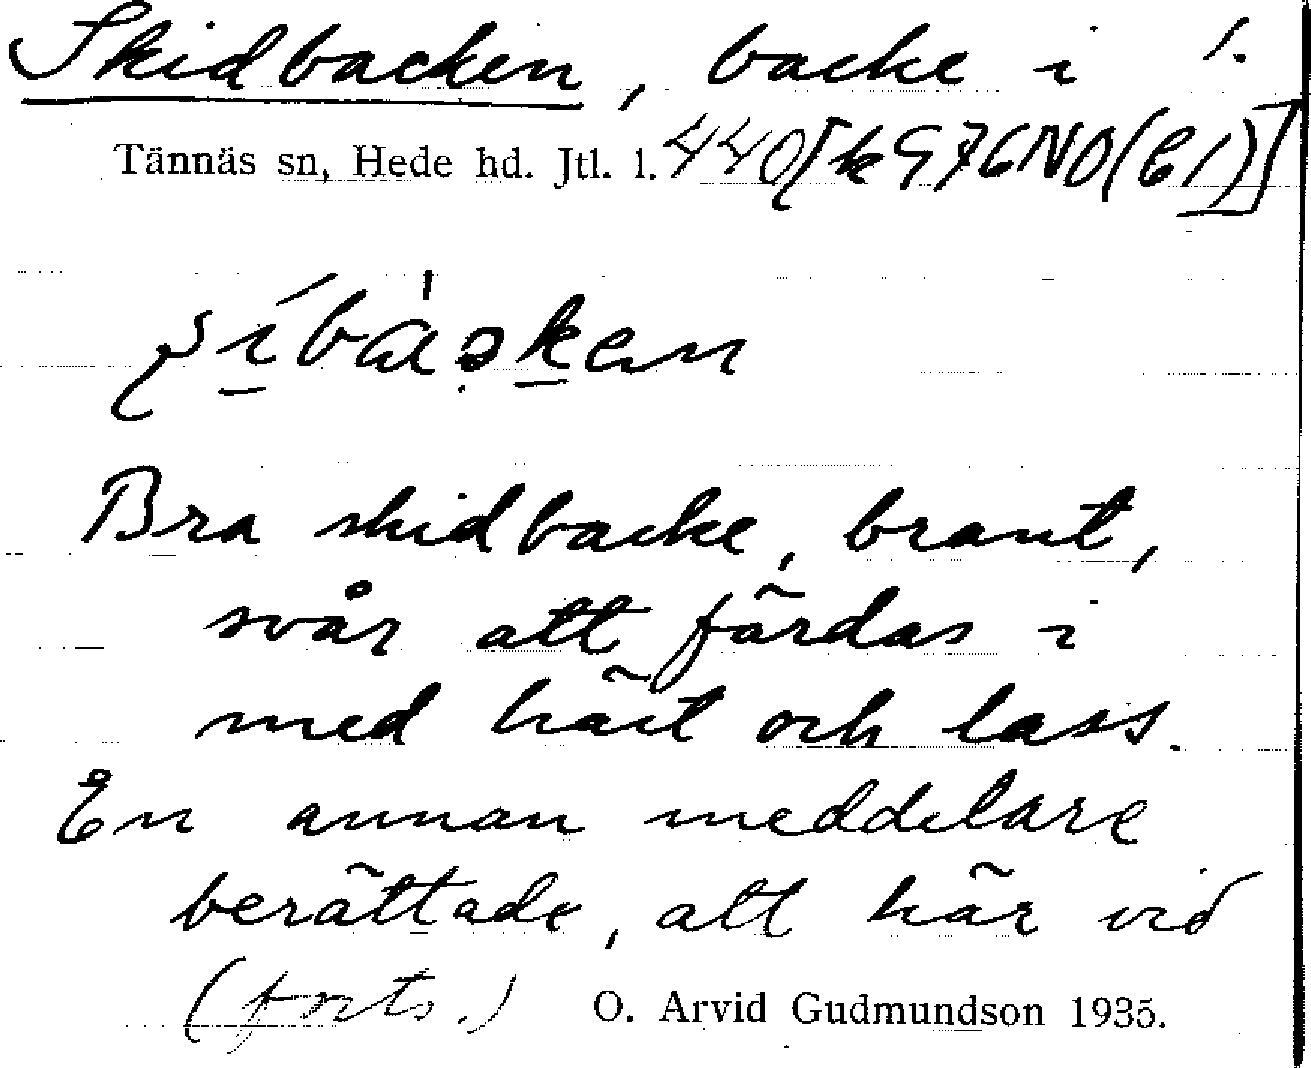 Skidbacken, backe i 1.
Tännäs sn, Hede hd. Jtl. l. 440[k 976NO(61)]
Bra skidbacke, brant,
svår att färdas i
med häst och lass.
En annan meddelare
berättade, att här vid
(forts.) O. Arvid Gudmundson 1935.